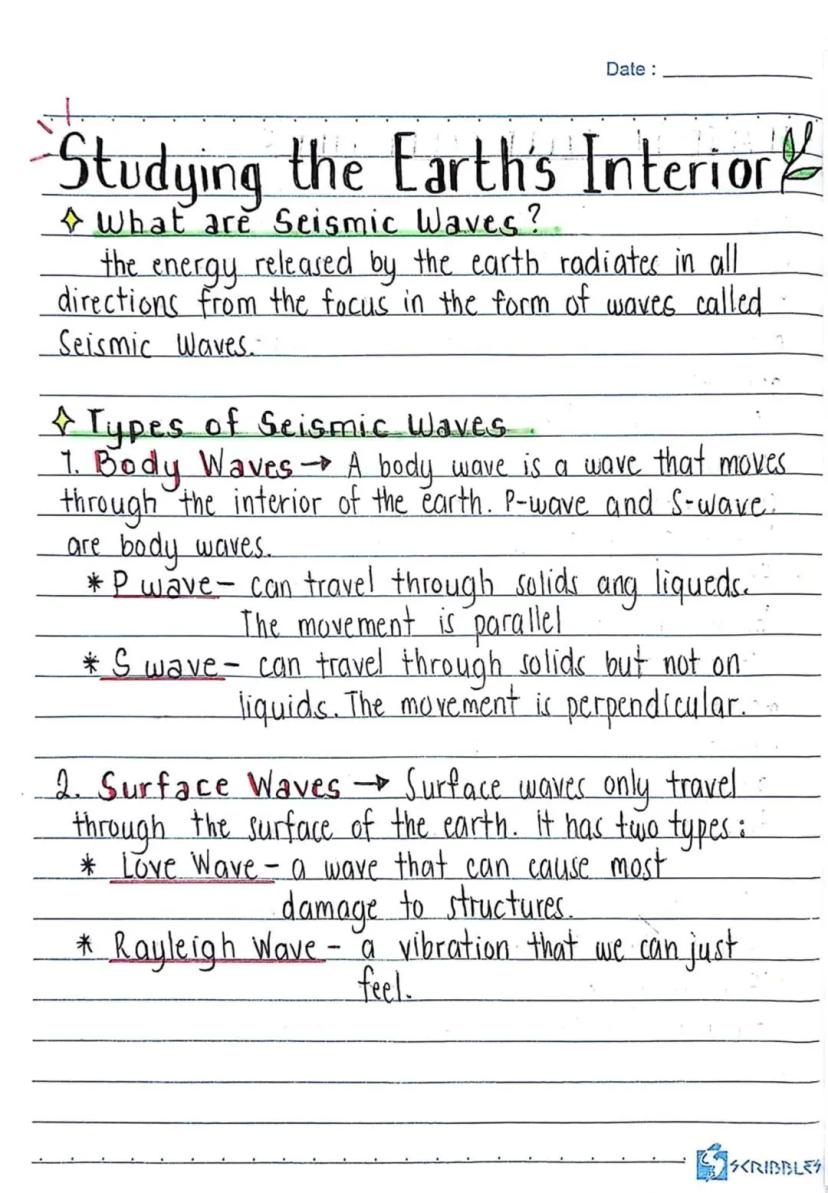 Date :
Studying the Earth's Interior
What are Seismic Waves?
the energy released by the earth radiates in all
directions from the focus in the form of waves called
Seismic Waves.
Types of Seismic Waves
1. Body Waves → A body wave is a wave that moves
through the interior of the earth. P-wave and S-wave
are body waves.
* P wave - can travel through solids ang liqueds.
The movement is parallel
* S wave - can travel through solids but not on
liquids. The movement is perpendicular.
2. Surface Waves → Surface waves only travel
through the surface of the earth. it has two types:
* Love Wave - a wave that can cause most
damage to structures.
* Rayleigh Wave - a vibration that we can just
feel.
SCRIBBLES